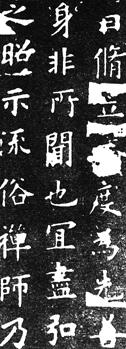 曰脩立度為先
身非所聞也宜盡弘
之昭示流俗禪師乃